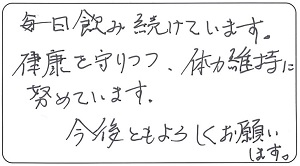 毎日飲み続けています。
健康を守りつつ、体力維持に
努めています.
今後ともよろしくお願い
します。